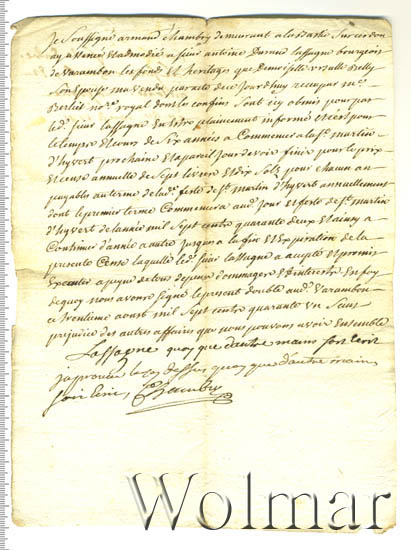 Je soussigné armand Chambry demeurant a la Bastie sur cerdon
ay a venir et admodié a sieur antoine Dumad lassagne bourgeois
de Varambon les fonds et heritages que Demoiselle ursulle Belly
son Epouse ma vendu par acte de ce jourdhuy receu par me
Berliet nore royal dont les confins sont icy obmis pour par
led. sieur lassagne en Estre plainement informé et ce pour
le temps et cours de six années a Commencer a la st martin
d'hyvert prochain et a pareil jour devoir finir pour le prix
et cense annuelle de sept livres et dix sols pour chacun an
payables au terme de lad. feste de st martin d'hyvert annuellement
dont le premier terme Commencera aud. jour et feste de st martin
d'hyvert de lannée mil sept cents quarante deux et ainsy a
Continuer d'année a autre jusques a la fin et Expiration de la
presente Cense laquelle led. sieur lassagne a accepté et promis
Executer a peyne de tous depens dommages et interests En foy
de quoy nous avons signé le present double aud. Varambon
ce trentieme aoust mil sept cents quarante un sans
prejudice des autres affaires que nous pouvons avoir Ensemble
Lassagne quoy que d'autre main soit Ecrit
japrouve le cy dessus quoy que d'autre main
soit Ecrit Chambry
Wolmar